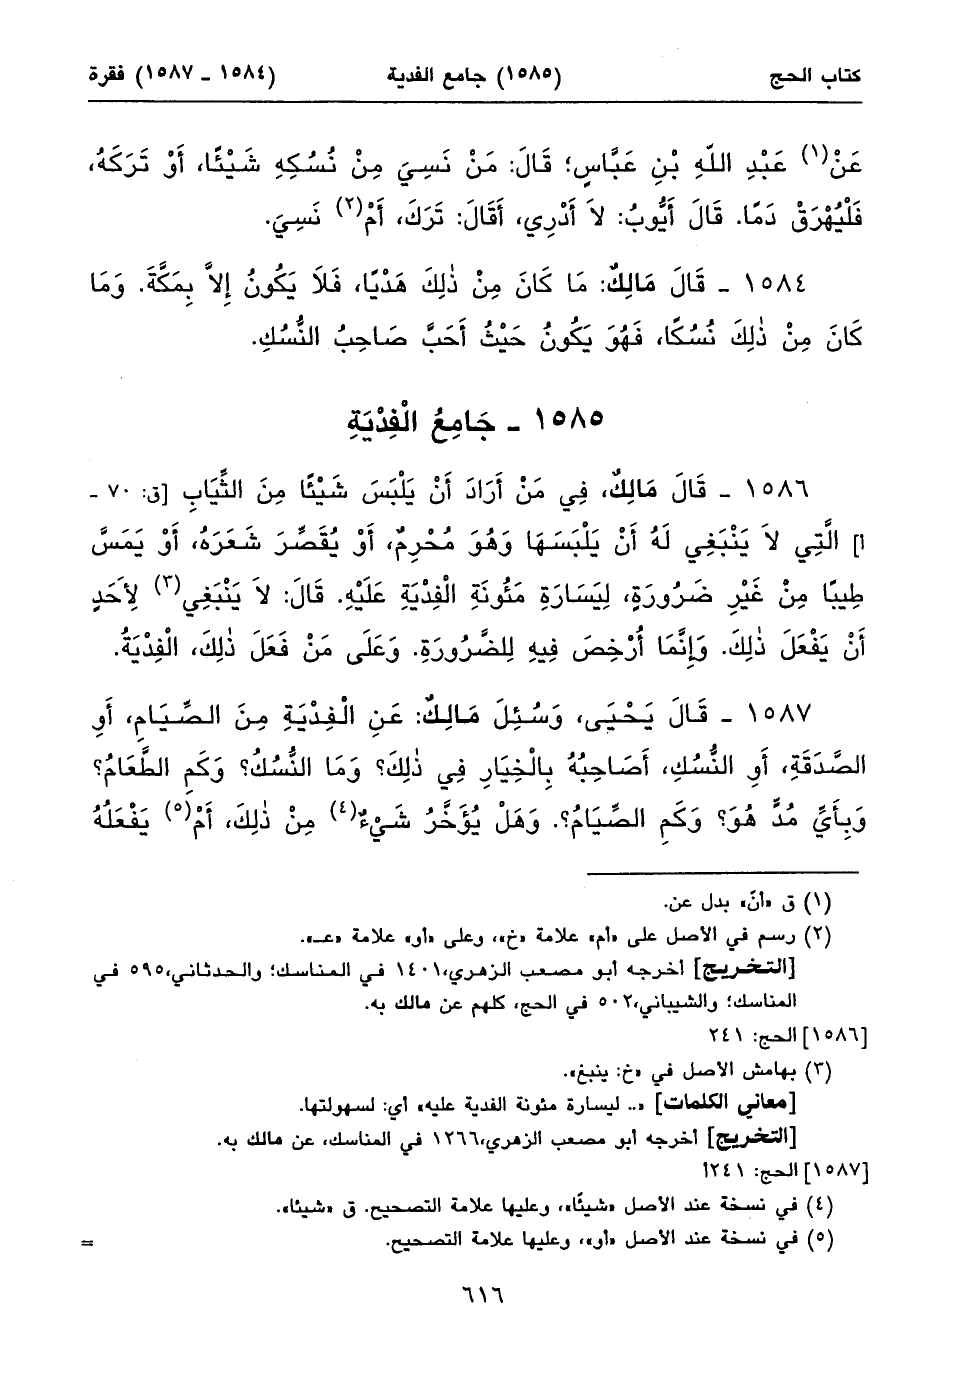 كتاب الحج (١٥٨٥) جامع الفدية (١٥٨٤ - ١٥٨٧) فقرة
عَنْ(١) عَبْدِ اللّهِ بْنِ عَبَّاسٍ؛ قَالَ: مَنْ نَسِيَ مِنْ نُسُكِهِ شَيْئًا، أَوْ تَرَكَهُ،
فَلْيُهْرَِقْ دَمًا. قَالَ أَيُّوبُ: لاَ أَدْرِي، أَقَالَ: تَرَكَ، أَمْ(٢) نَسِيَ.
١٥٨٤ - قَالَ مَالِكٌ: مَا كَانَ مِنْ ذٰلِكَ هَدْيًا، فَلَا يَكُونُ إِلاَّ بِمَكَّةَ. وَمَا
كَانَ مِنْ ذٰلِكَ نُسُكًا، فَهُوَ يَكُونُ حَيْثُ أَحَبَّ صَاحِبُ النُّسُكِ.
١٥٨٥ - جَامِعُ الْفِدْيَةِ
١٥٨٦ - قَالَ مَالِكٌ، فِي مَنْ أَرَادَ أَنْ يَلْبَسَ شَيْئًا مِنَ الثِّيَابِ [ق: ٧٠ -
أ] الَّتِي لاَ يَنْبَغِي لَهُ أَنْ يَلْبَسَهَا وَهُوَ مُحْرِمٌ، أَوْ يُقَصِّرَ شَعَرَهُ، أَوْ يَمَسَّ
طِيبًا مِنْ غَيْرِ ضَرُورَةٍ، لِيَسَارَةِ مَئُونَةِ الْفِدْيَةِ عَلَيْهِ. قَالَ: لاَ يَنْبَغِي(٣) لِأَحَدٍ
أَنْ يَفْعَلَ ذٰلِكَ. وَإِنَّمَا أُرْخِصَ فِيهِ لِلضَّرُورَةِ. وَعَلَى مَنْ فَعَلَ ذٰلِكَ، الْفِدْيَةُ.
١٥٨٧ - قَالَ يَحْيَى، وَسُئِلَ مَالِكٌ: عَنِ الْفِدْيَةِ مِنَ الصِّيَامِ، أَوِ
الصَّدَقَةِ، أَوِ النُّسُكِ، أَصَاحِبُهُ بِالْخِيَارِ فِي ذٰلِكَ؟ وَمَا النُّسُكُ؟ وَكَمِ الطَّعَامُ؟
وَبِأَيِّ مُدٍّ هُوَ؟ وَكَمِ الصِّيَامُ؟. وَهَلْ يُؤَخَّرُ شَيْءٌ(٤) مِنْ ذٰلِكَ، أَمْ(٥) يَفْعَلُهُ
(١) ق «أنّ» بدل عن.
(٢) رسم في الأصل على «أم» علامة «خ»، وعلى «أو» علامة «عـ».
[التخريج] أخرجه أبو مصعب الزهري، ١٤٠١ في المناسك؛ والحدثاني، ٥٩٥ في
المناسك؛ والشيباني، ٥٠٢ في الحج، كلهم عن مالك به.
[١٥٨٦] الحج: ٢٤١
(٣) بهامش الأصل في «خ: ينبغ».
[معاني الكلمات] «.. ليسارة مئونة الفدية عليه» أي: لسهولتها.
[التخريج] أخرجه أبو مصعب الزهري، ١٢٦٦ في المناسك، عن مالك به.
[١٥٨٧] الحج: ٢٤١أ
(٤) في نسخة عند الأصل «شيئًا»، وعليها علامة التصحيح. ق «شيئا».
(٥) في نسخة عند الأصل «أو»، وعليها علامة التصحيح. =
٦١٦